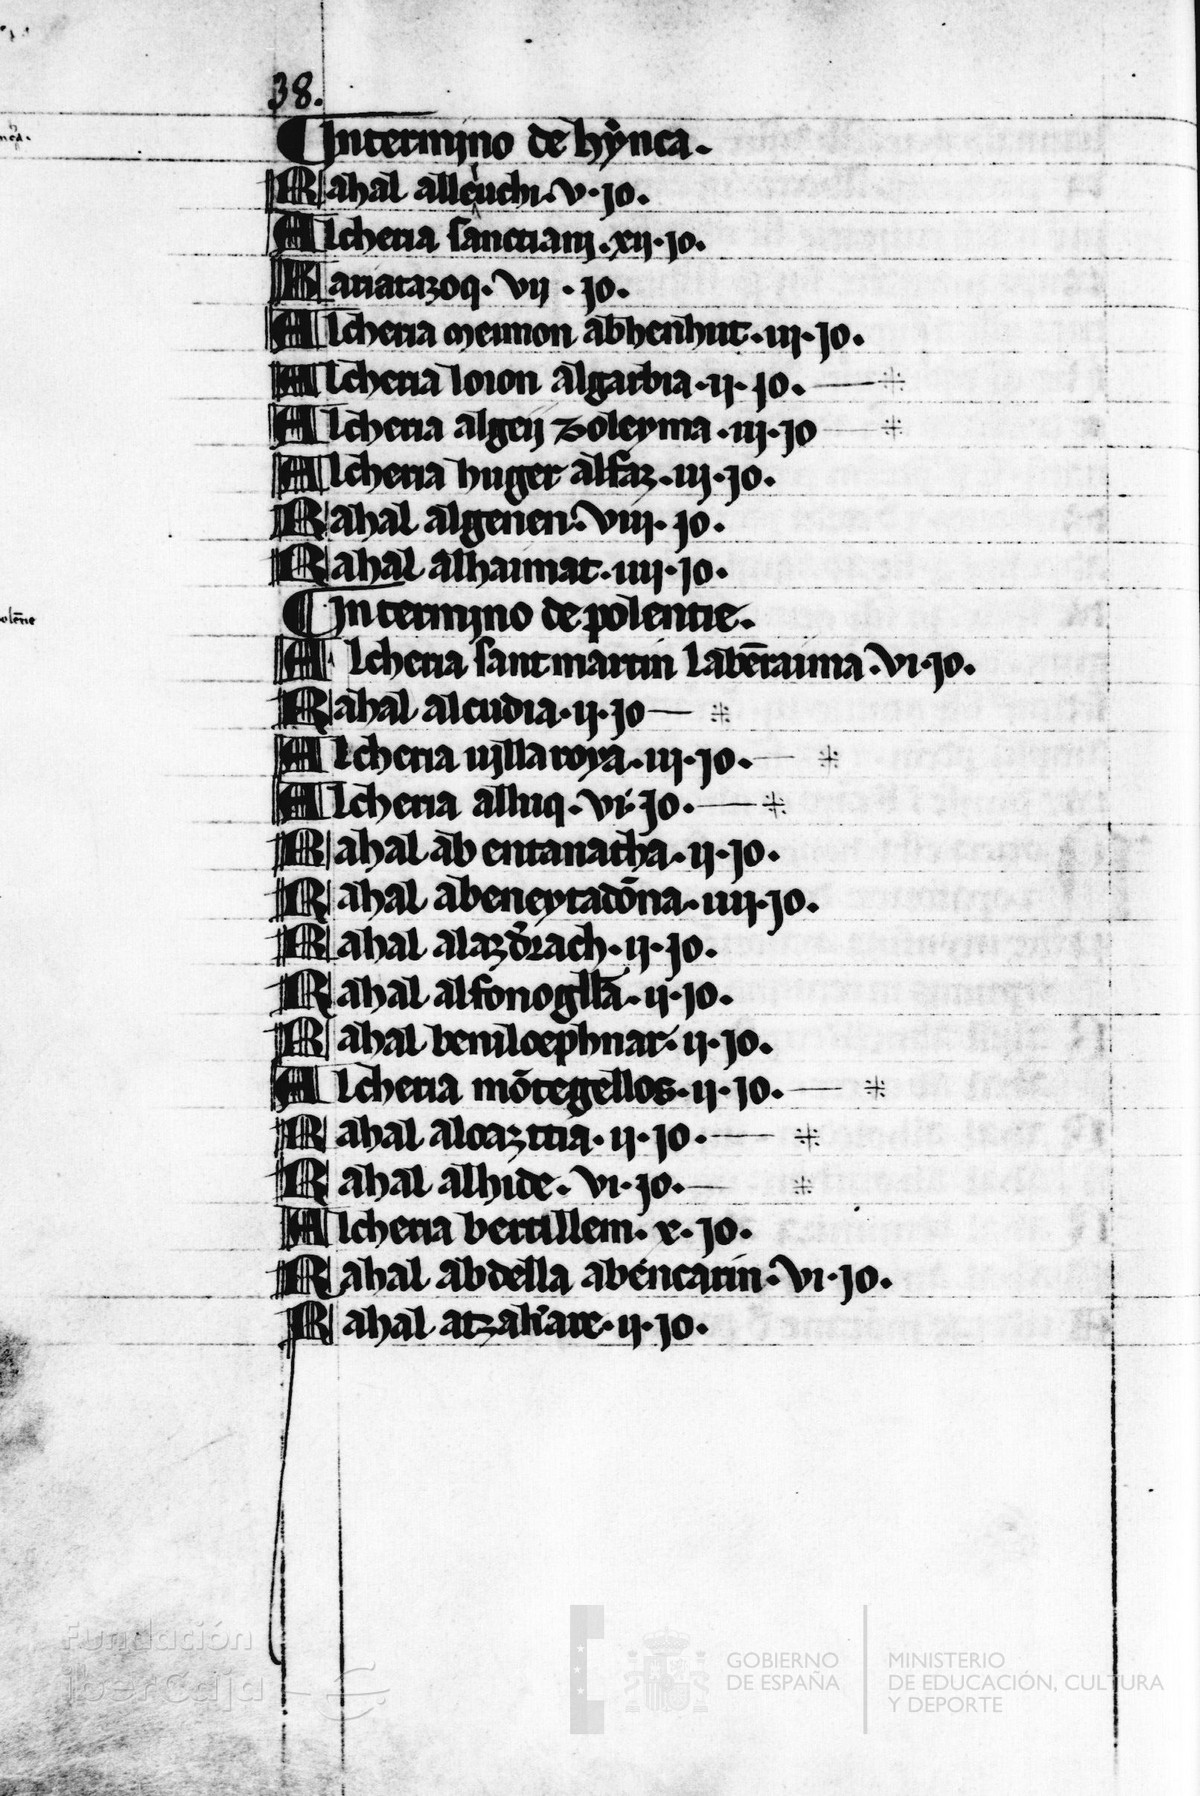 38.
In termino de hynca.
Rahal alleuchi. v. jo.
Alcheria sanctiani. xij. jo.
Rariatazoq. vij. jo.
Alcheria meimon abhenhut. iij. jo.
Alcheria loion algarbia. ij. jo.
Alcheria algeij zoleyma. iij. jo
Alcheria huget alfaz. iij. jo.
Rahal algenen. viij. jo.
Rahal alhaimat. iiij. jo.
In termino de polentie.
Alcheria sant martin labēraima. vi. jo.
Rahal alcudia. ij. jo
Alcheria uilla roya. iij. jo.
Alcheria alluq. vi. jo.
Rahal ab entanatha. ij. jo.
Rahal abeneytadōna. iiij. jo.
Rahal alazdrach. ij. jo.
Rahal alfonoglla. ij. jo.
Rahal beniloephnar. ij. jo.
Alcheria mōtegellos. ij. jo.
Rahal aloaztia. ij. jo.
Rahal alhide. vi. jo.
Alcheria bertillem. x. jo.
Rahal abdella abencarin. vi. jo.
Rahal atzahare. ij. jo.
Fundación
iberCaja
GOBIERNO
DE ESPAÑA
MINISTERIO
DE EDUCACIÓN, CULTURA
Y DEPORTE